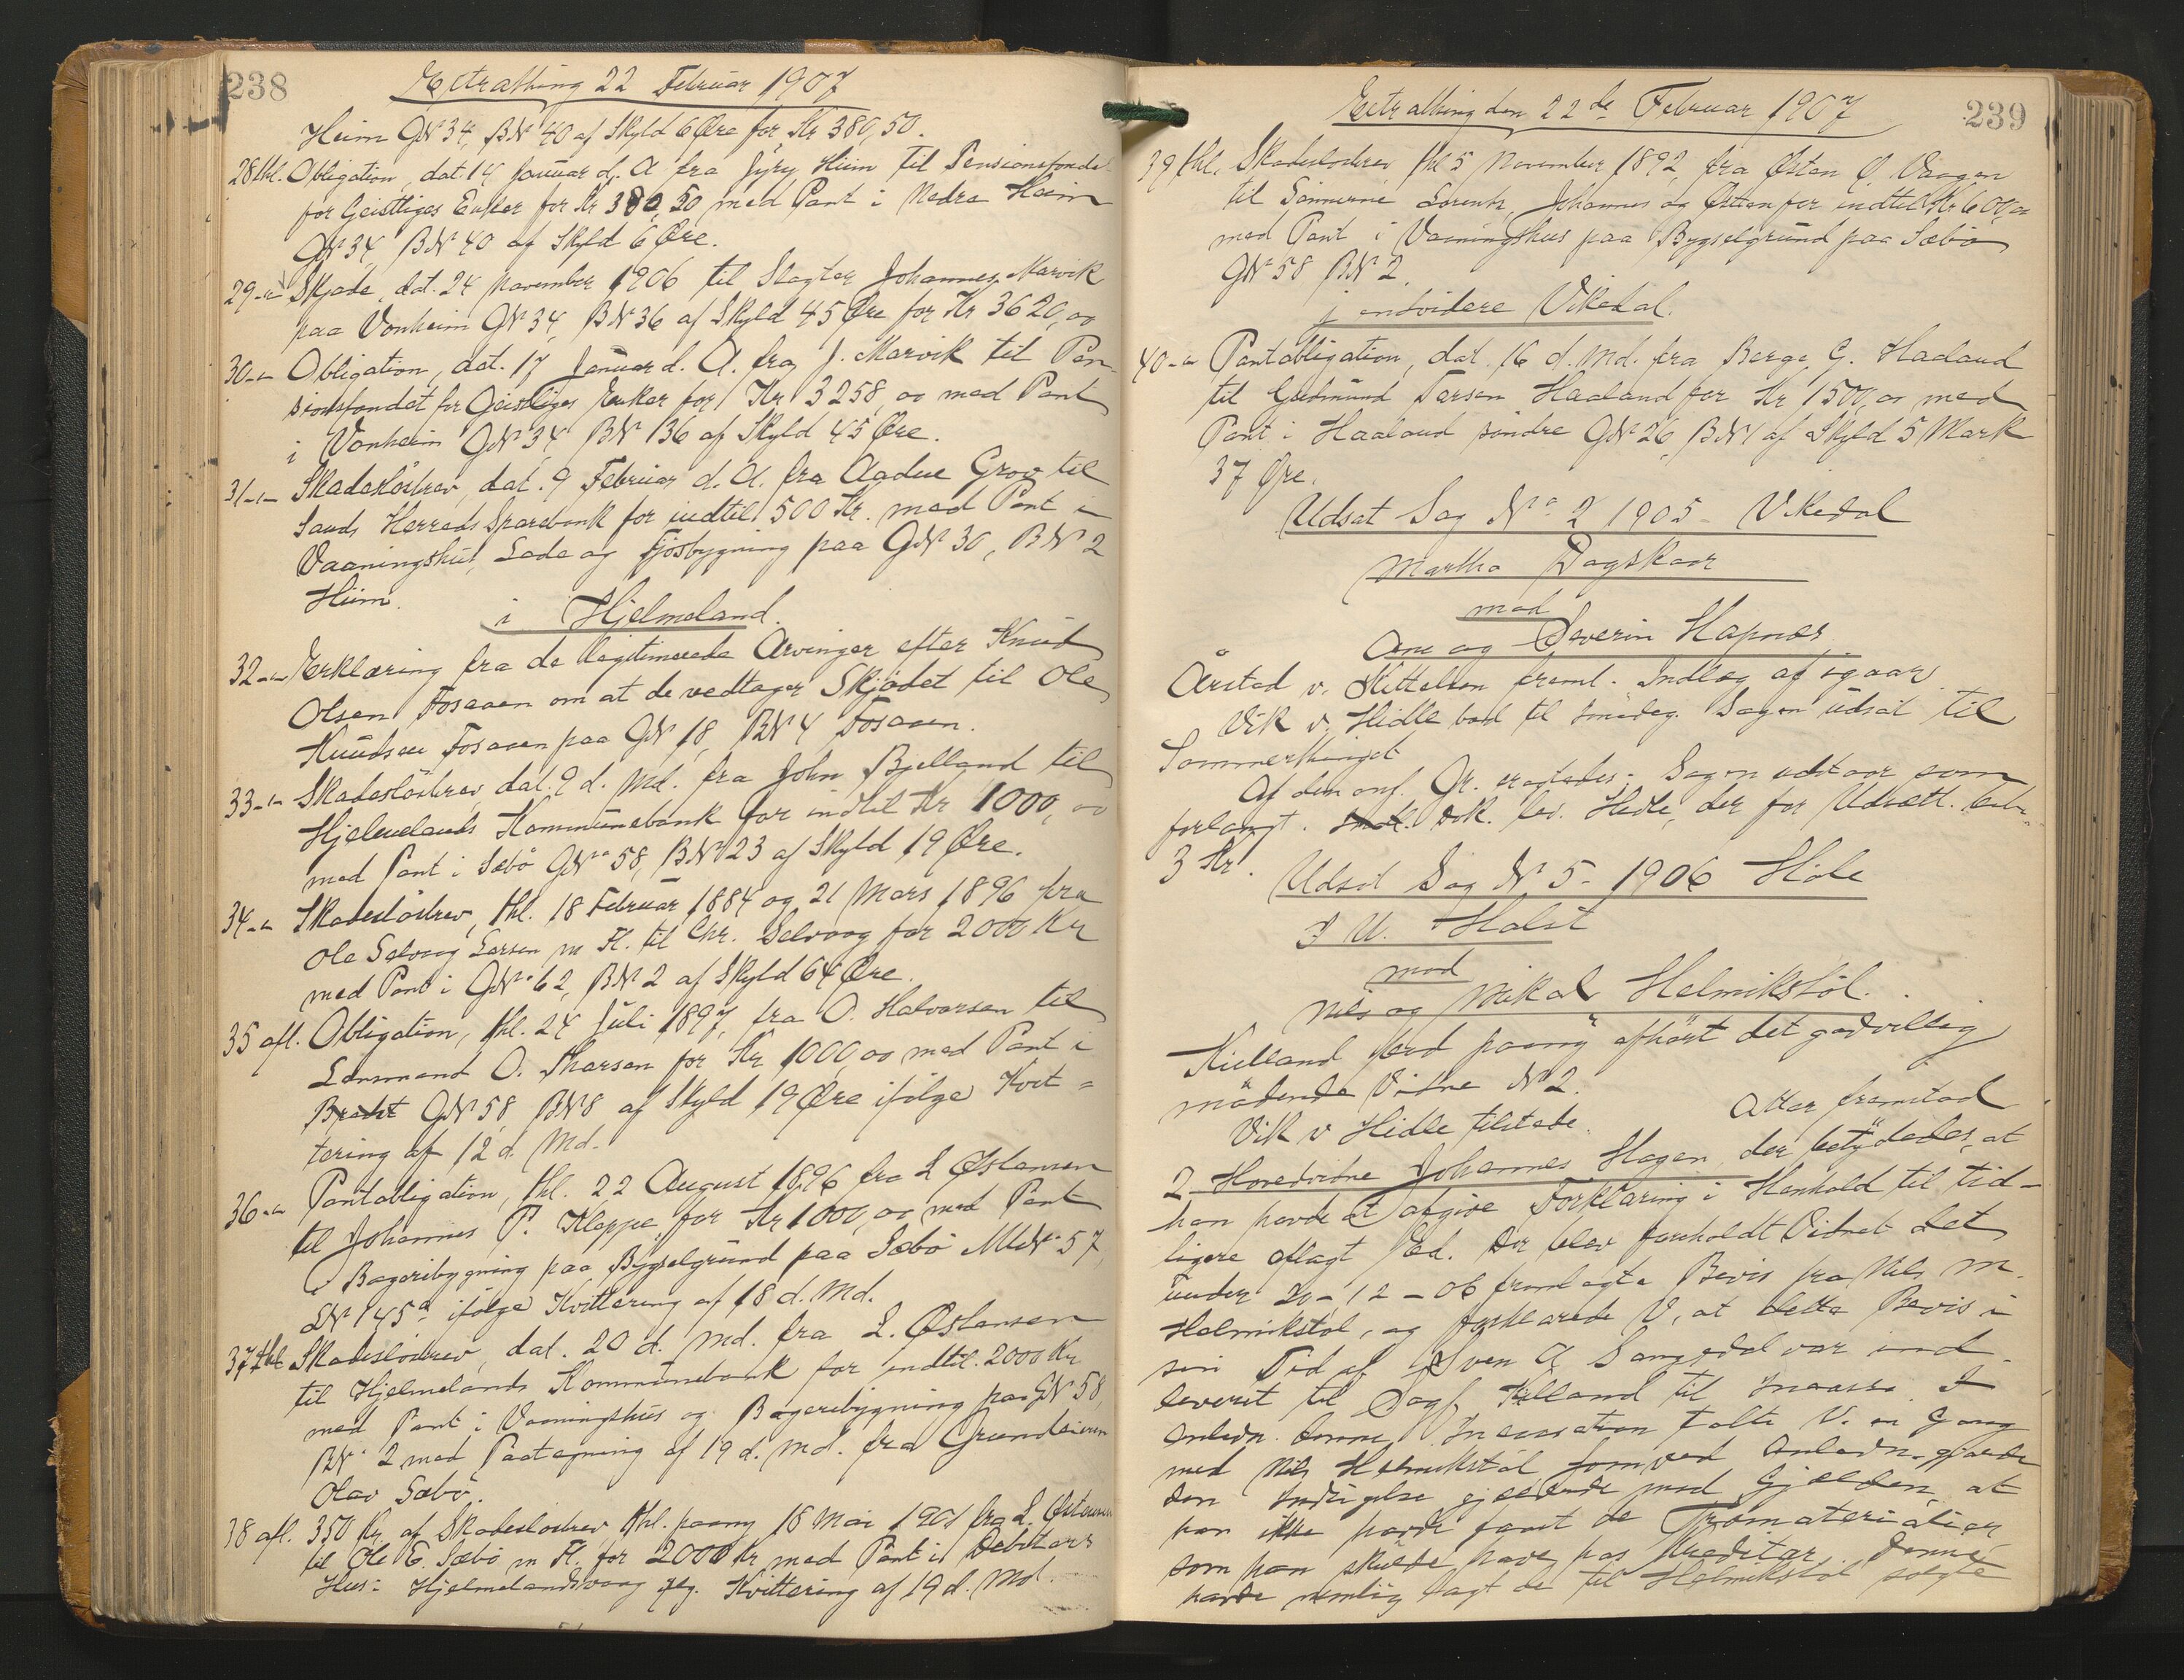 238
Extrathing 22 Februar 1907
Heim GN 34, BN 40 af Skyld 6 Øre for Kr 380,50.
28 thl. Obligation, dat. 14 Januar d. A fra Jyry Hiim til Pensionsfondet
for Geistliges Enker for Kr 380,50 med Pant i Nedre Heim
GN 34 BN 40 af Skyld 6 Øre.
29 -"- Skjøde, dat. 24 November 1906 til Slagter Johannes Marvik
paa Vonheim GN 34, BN 36 af Skyld 45 Øre for Kr 3620,00
30 -"- Obligation, dat. 17 Januar d. A. fra J. Marvik til Pen-
sionsfondet for Geistliges Enker for Kr 3258,00 med Pant
i Vonheim GN 34 BN 136 af Skyld 45 Øre.
31 -"- Skadesløsbrev, dat. 9 Februar d. A. fra Aadne Grov til
Sands Herreds Sparebank for indtil 500 Kr. med Pant i
Vaaningshus, Lade og Fjøsbygning paa GN 30, BN 2
Hiim.
i Hjelmeland.
32 -"- Erklæring fra de legitimerede Arvinger efter Knud
Olsen Fosaaen om at de vedtager Skjødet til Ole
Knudsen Fosaaen paa GN 18, BN 4 Fosaaen.
33 -"- Skadesløsbrev, dat. 9 d. Md. fra John Bjelland til
Hjelmelands Kommunebank for indtil Kr 1000,00
med Pant i Sæbø GN 58, BN 23 af Skyld 19 Øre.
34 -"- Skadesløsbrev, thl. 18 Februar 1884 og 21 Mars 1896 fra
Ole Selvaag Larsen m Fl. til Chr. Selvaag for 2000 Kr
med Pant i GN 62, BN 2 af Skyld 64 Øre.
35 afl. Obligation, thl. 24 Juli 1897, fra O. Halvorsen til
Lensmand O. Tharsen for Kr 1000,00 med Pant i
GN 58, BN 8 af Skyld 19 Øre ifølge Kvit-
tering af 12 d. Md.
36 -"- Pantobligation, thl. 22 August 1896 fra L Østensen
til Johannes P. Kleppe for Kr 1000,00 med Pant
i Bageribygning paa Bygselgrund paa Sæbø MN 57,
LN 145 a ifølge Kvittering af 18 d. Md.
37 thl Skadesløsbrev, dat. 20 d. Md. fra L. Østensen
til Hjelmelands Kommunebank for indtil 2000 Kr
med Pant i Vaaningshus og Bageribygning paa GN 58,
BN 2 med Paategning af 19 d. Md. fra Grundeieren
Olav Sæbø.
38 afl. 350 Kr af Skadesløsbrev thl. paany 18 Mai 1901 fra L. Østensen
til Ole E. Sæbø m Fl. for 2000 Kr med Pant i Debitors
Hus i Hjelmelandsvaag Kvittering af 19 d. Md.
239
Extrathing den 22de Februar 1907
39 thl. Skadesløsbrev, thl 5 November 1892, fra Østen Ø. Vaagen
til Sønnerne Lorentz, Johannes og Østen for indtil Kr 600,00
med Pant i Vaaningshus paa Bygselgrund paa Sæbø
GN 58 BN 2.
j ensvidere Vikedal.
40 -"- Pantobligation, dat. 16 d. Md. fra Berge G. Haaland
til Gudmund Larsen Haaland for Kr 1500,00 med
Pant i Haaland søndre GN 26, BN 1 af Skyld 5 Mark
37 Øre.
Udsat Sag No 2 1905 - Vikedal
Martha Dagskaar
mod
Ane og Severin Hapnæs
Årstad v. Kittelsen freml. Indlæg af igaar
Vik v. Hidle bad til Sagen udsat til
Sommerthinget
Af den onf. Gr. eragtedes: Sagen udstaar som
forlangt. Dok. lev. Hidle, der for Udsætt. bet.
3 Kr.
Udsat Sag N 5 - 1906 Høle
J U. Holst
mod
Nils og Mikal Helmikstøl.
Kielland paany afhørt det godvillig
mødende Vidne N 2.
Vik v Hidle tilstede. Atter fremstod
2 Hovedvidne Johannes Hagen, der betydedes, at
han havde at afgive Forklaring i Henhold til tid-
ligere aflagt Ed. Der blev foreholdt Vidnet det
under 20-12-06 fremlagte Bevis fra Nils M.
Helmikstøl, og forklarede V, at dette Bevis i
sin Tid af Sven A Sangedal var ind-
leveret til Sagf. Kielland til Incasso. I
Anledn. denne Incassation talte V. en Gang
med Nils Helmikstøl som ved Anledn. gjorde
den Indsigelse gjeldende mod Gjælden, at
han ikke havde faaet de Træmaterialier
som han skulde have hos Kreditor. Denne
havde nemlig sagt de til Helmikstøl solgte